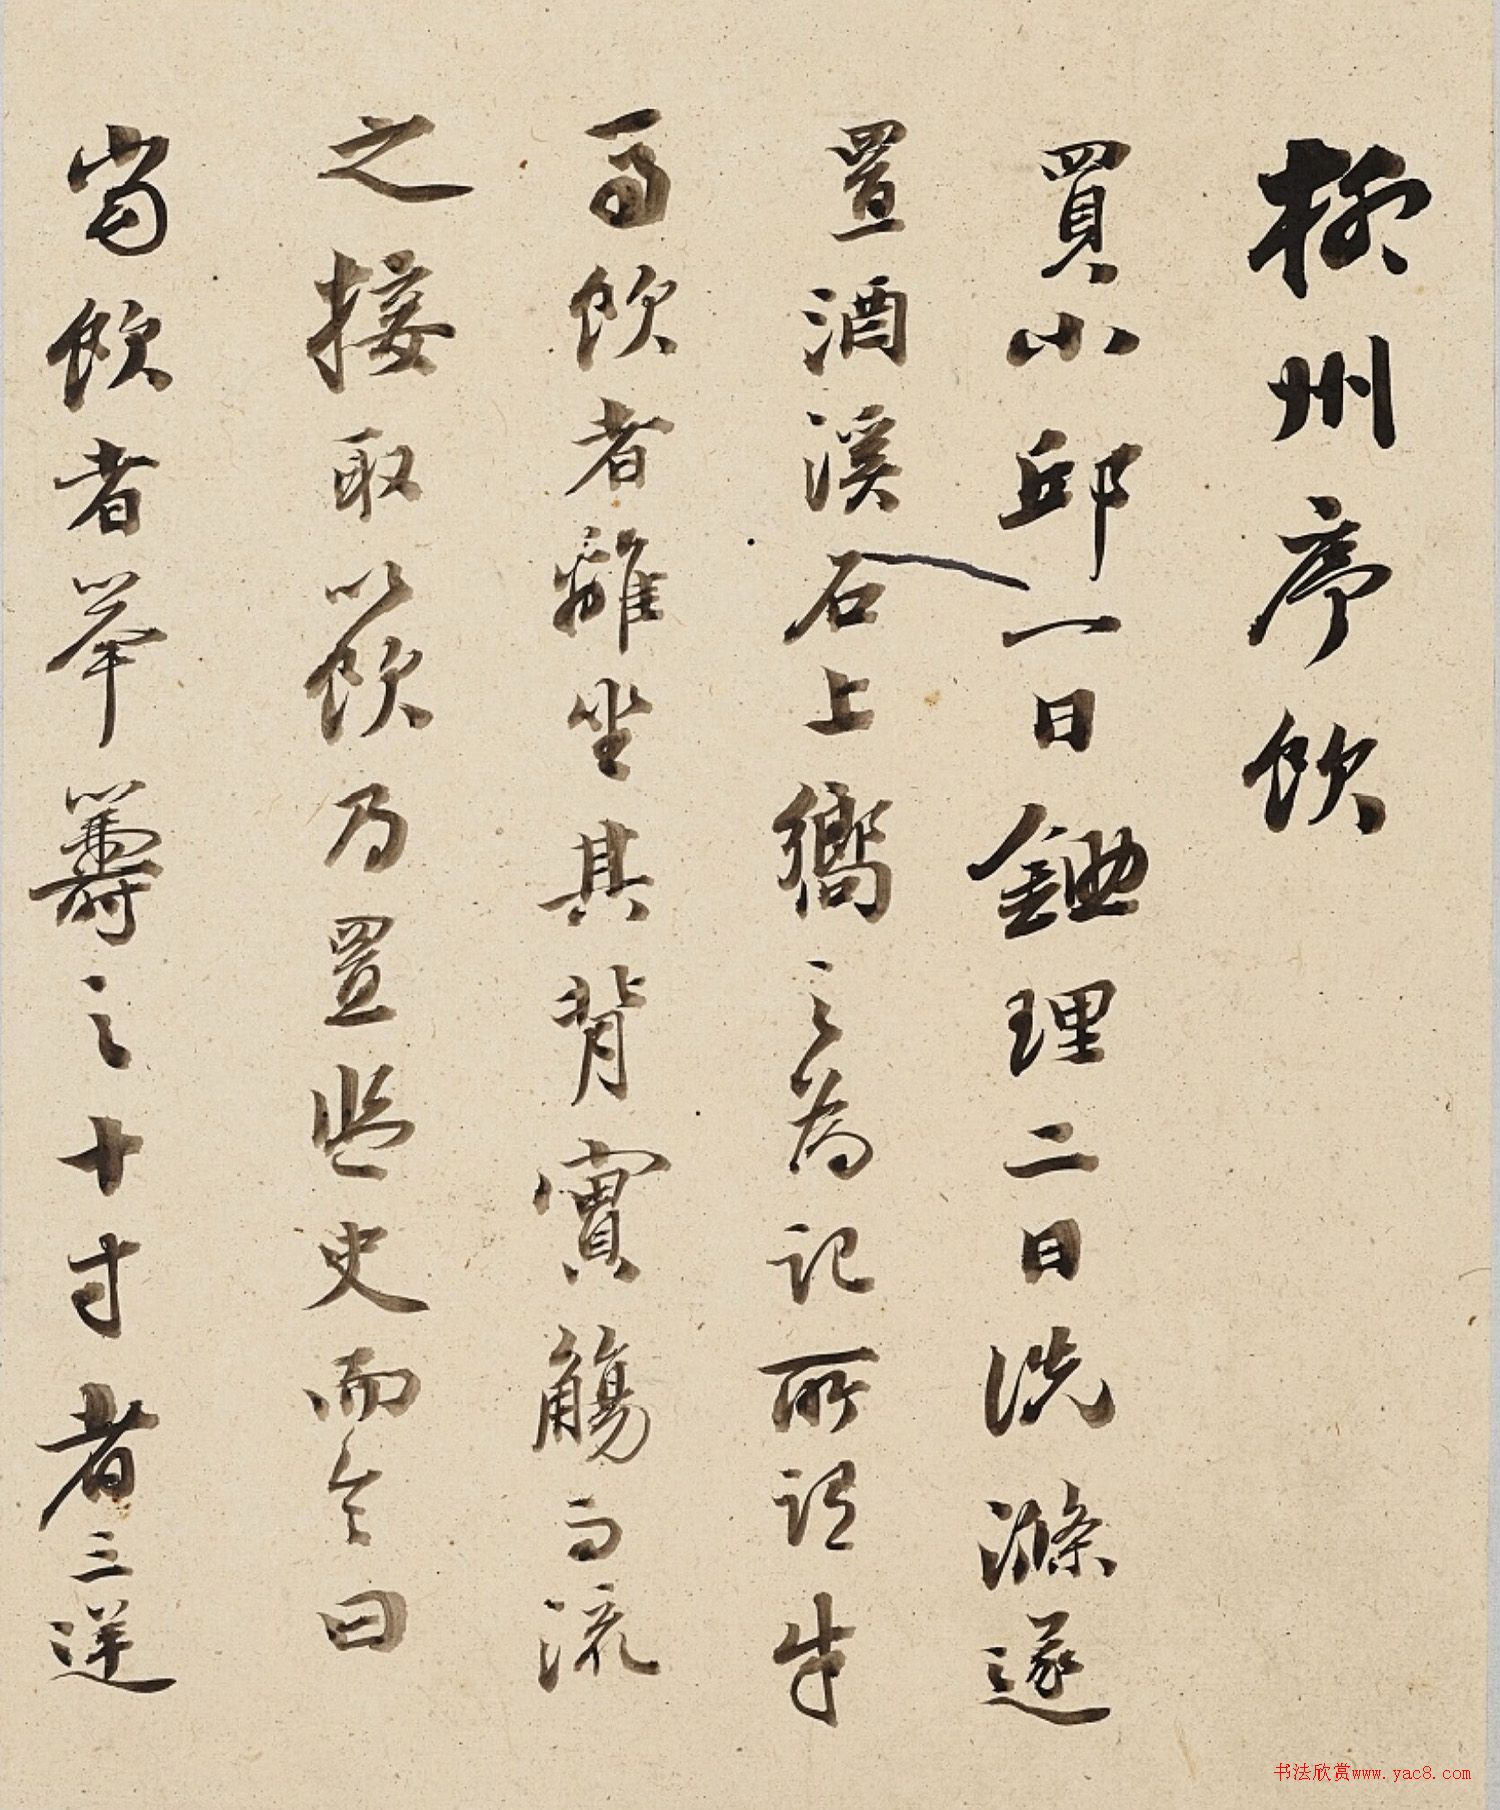 柳州序飲
買小邱一日鋤理二日洗滌遂
置酒溪石上嚮之為記所謂牛
馬飲者離坐其背實觴而流
之接取以飲乃置監史而令曰
當飲者舉籌之十寸者三逆
书法欣赏www.yac8.com